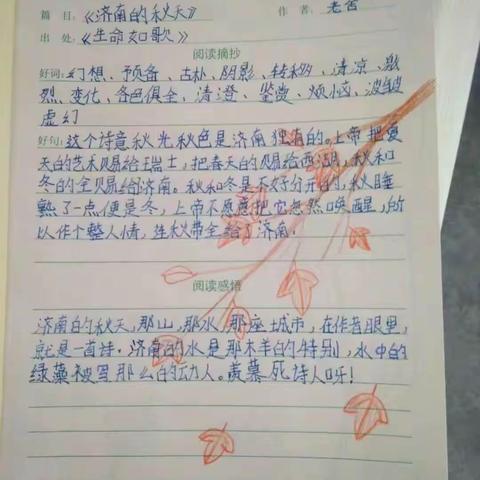 篇 目：《济南的秋天》 作 者：老舍
出 处：《生命如歌》
阅读摘抄
好词：幻想、预备、古朴、阴影、转移、清凉、激
烈、变化、各色俱全、清澄、鉴赏、烦恼、波皱
虚幻
好句：这个诗意秋光秋色是济南独有的。上帝把夏
天的艺术赐给瑞士，把春天的赐给西湖，秋和
冬的全赐给济南。秋和冬是不好分开的，秋睡
熟了一点便是冬，上帝不愿意把它忽然唤醒，所
以作个整人情，连秋带冬给了济南！
阅读感悟
济南的秋天，那山，那水，那座城市，在作者眼里，
就是一首诗。济南的水是那样的特别，水中的
绿藻被写那么的动人。羡慕死诗人呀！